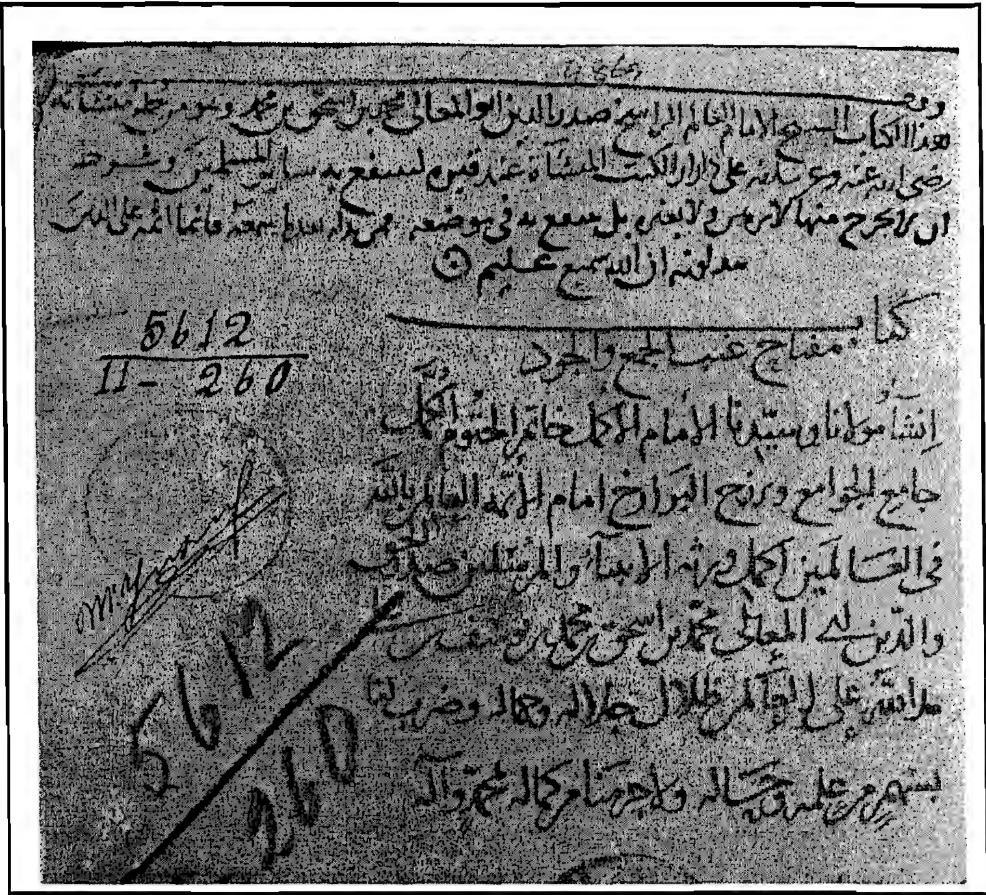 وقف
هذا الكتاب الشيخ الامام العالم الراسخ صدر الدين ابو المعالي محمد بن اسحق بن محمد وهو
رضي الله عنه على دار الكتب المنشأة عند قبره لينتفع به سائر المسلمين وشرط
ان لا يخرج منها لا برهن ولا بغيره بل ينتفع به في موضعه فمن بدله بعدما سمعه فانما اثمه على الذين
يبدلونه ان الله سميع عليم
كتاب
مفتاح غيب الجمع والوجود
5612
11- 260
انشأ مولانا وسيدنا الامام الاكمل خاتم الختوم
جامع الجوامع وبرزخ البرازخ امام الأئمة العالم بالله
في العالمين اكمل ورثة الانبياء والمرسلين صدر الحق
والدين ابي المعالي محمد بن اسحق بن محمد بن يوسف
مد الله على العالمين ظلال جلاله وجماله وضرب لنا
بسهم من علمه وحاله ولا حرمنا من كماله بمحمد وآله
5612
260